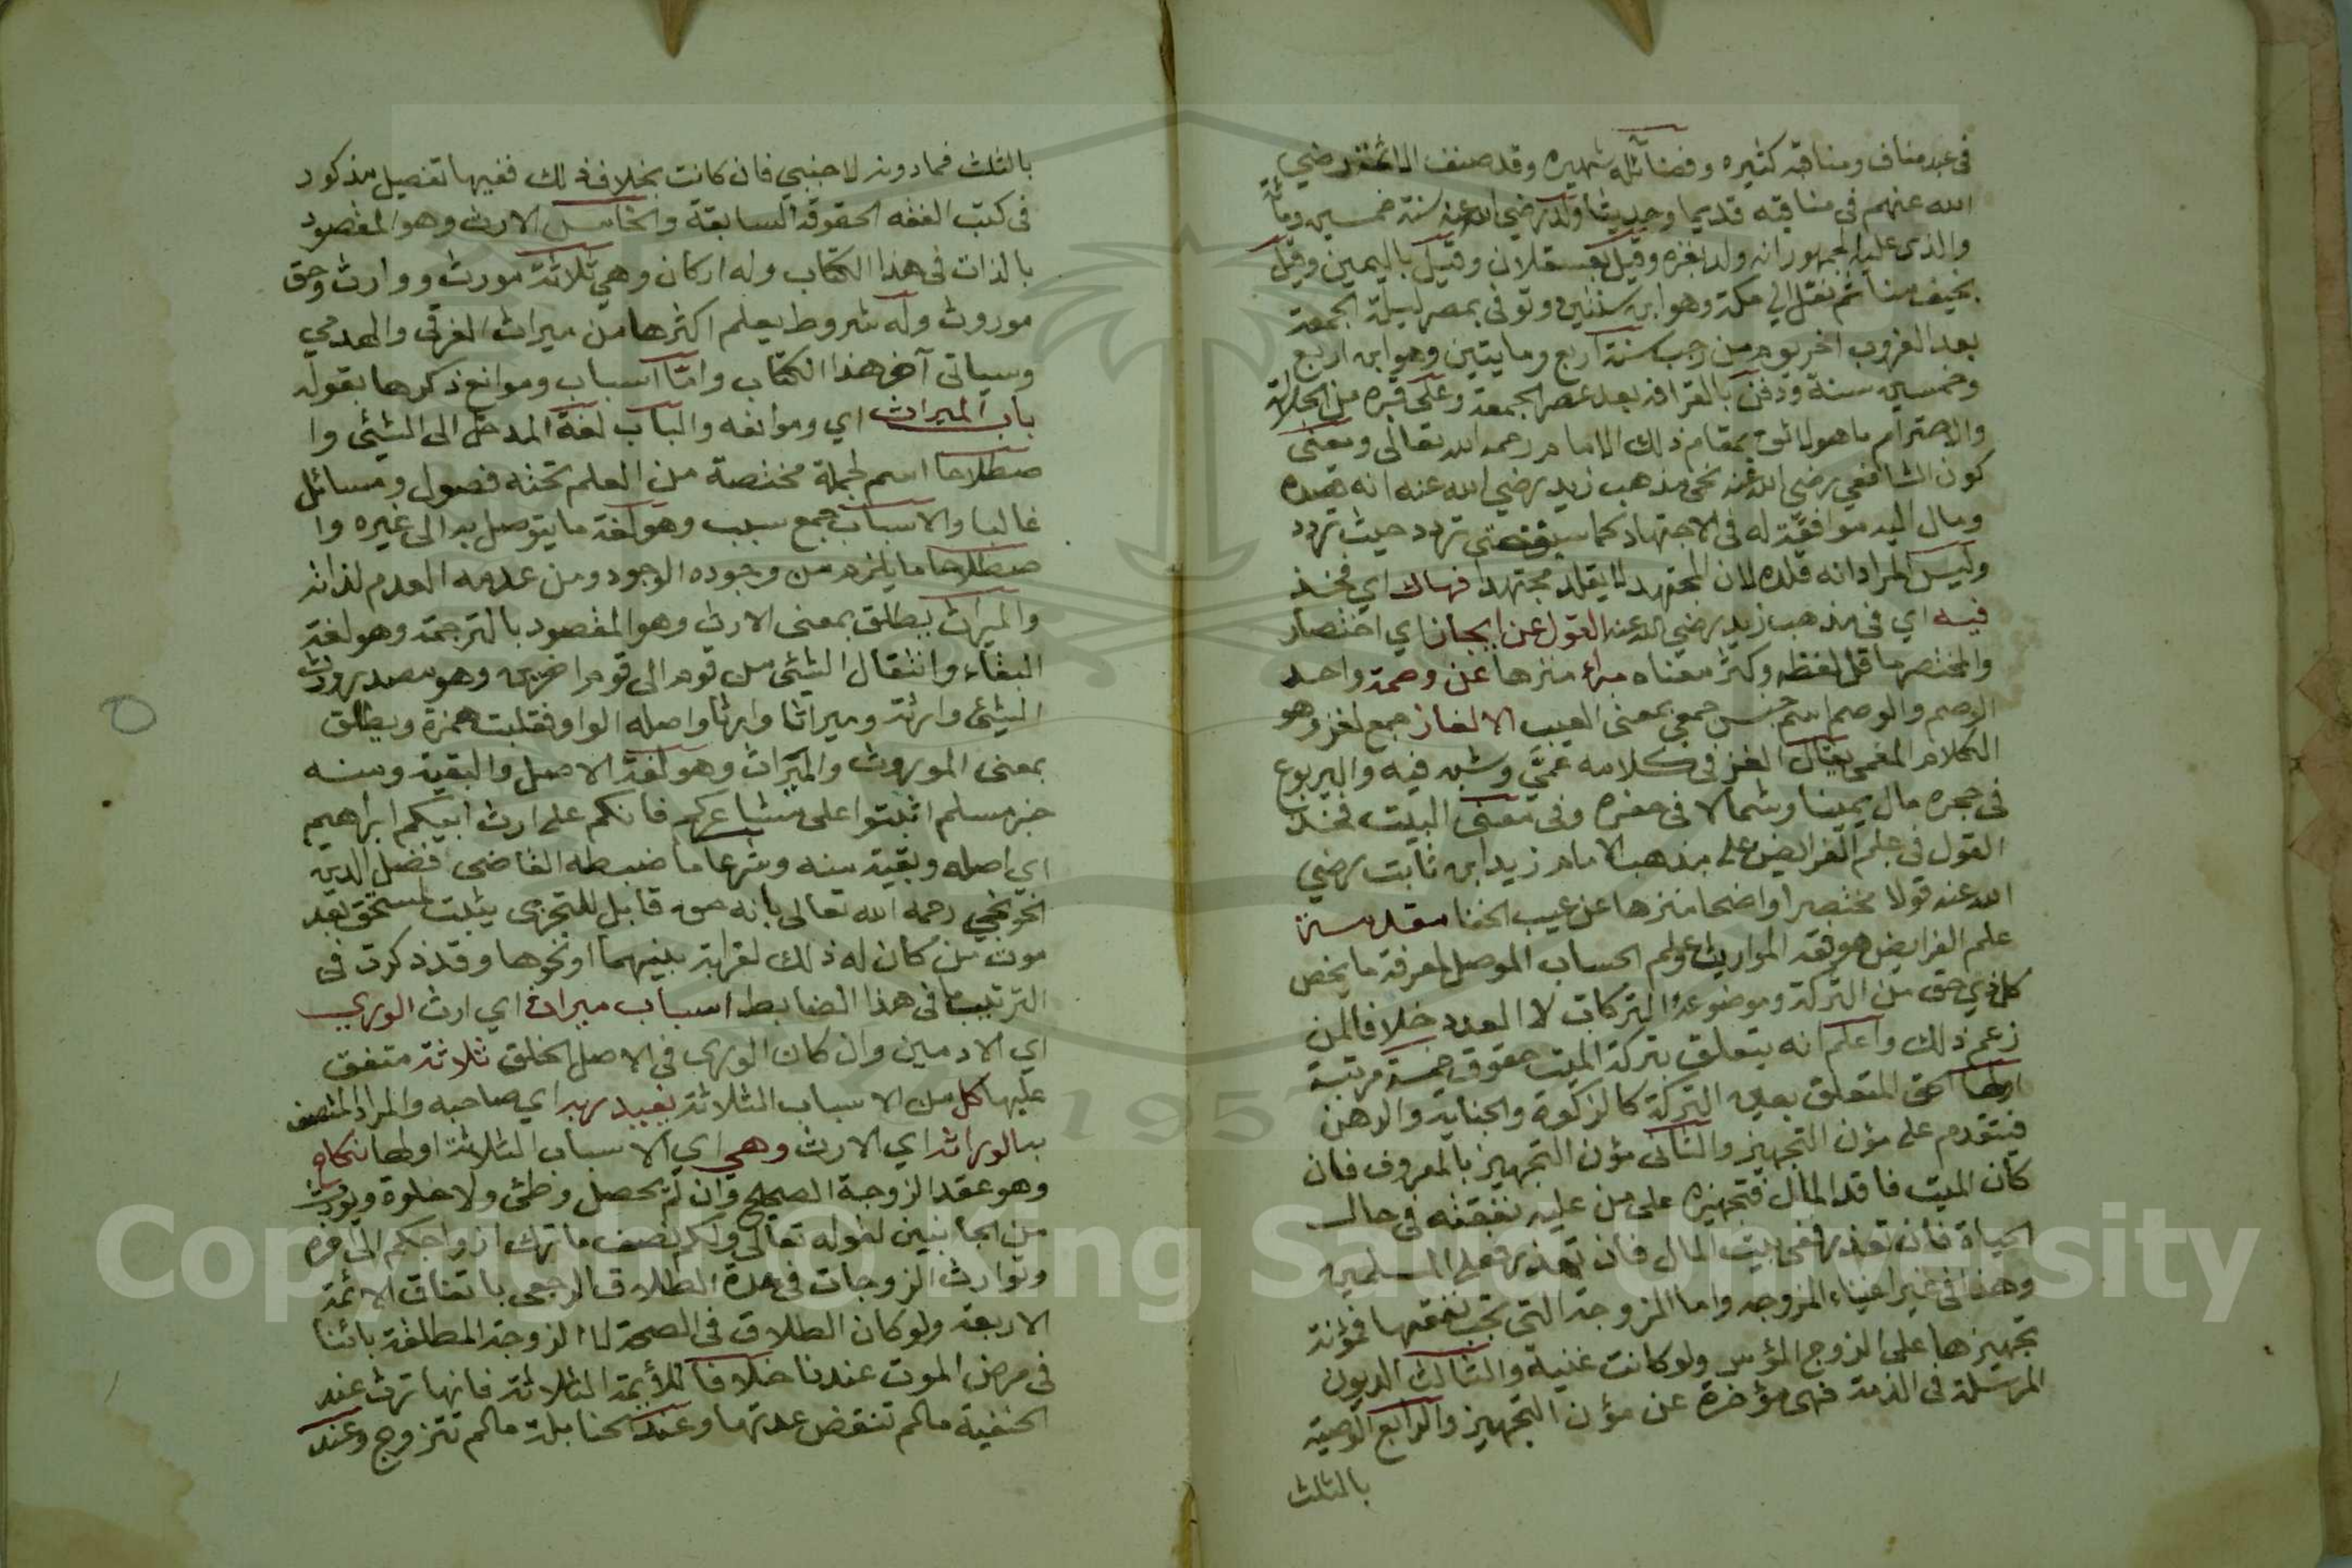 في عبد مناف ومناقبه كثيره وفضائله شهيره وقد صنف الائمة رضي
الله عنهم في مناقبه قديما وحديثا ولد رضي الله عنه سنة خمسين ومائة
والذي عليه الجمهور انه ولد بغزه وقيل بعسقلان وقيل باليمين وقيل
بخيف منا ثم نقل الي مكة وهو ابن سنتين وتوفي بمصر ليلة الجمعة
بعد الغروب اخر يوم من رجب سنة اربع ومايتين وهو ابن اربع
وخمسين سنة ودفن بالقرافة بعد عصر الجمعة وعلى قبره من الجلالة
والاحترام ما هو لائق بمقام ذلك الامام رحمه الله تعالى ومعنى
كون الشافعي رضي الله عنه نحى مذهب زيد رضي الله عنه انه قصده
ومال اليه موافقة له في الاجتهاد كما سبق حتى تردد حيث تردد
وليس المراد انه قلده لان المجتهد لا يقلد مجتهدا فهاك اي فخذ
فيه اي في مذهب زيد رضي الله عنه القول عن ايجاز اي اختصار
والمختصر ما قل لفظه وكثر معناه مبرأ منزها عن وصمة واحد
الوصم والوصم اسم جنس جمعي بمعنى العيب الالغاز جمع لغز وهو
الكلام المعمى يقال الغز في كلامه عمَّى وشبه فيه واليربوع
في حجره مال يمينا وشمالا في حفره وفي معنى البيت فخذ
القول في علم الفرايض على مذهب الامام زيد ابن ثابت رضي
الله عنه قولا مختصرا واضحا منزها عن عيب الخفا مقدمة
علم الفرايض هو فقه المواريث وعلم الحساب الموصل لمعرفة ما يخص
كل ذي حق من التركة وموضوعه التركات لا العدد خلافا لمن
زعم ذلك واعلم انه يتعلق بتركة الميت حقوق خمسة مرتبة
اولها الحق المتعلق بعين التركة كالزكوة والجناية والرهن
فيتقدم على مؤن التجهيز والثاني مؤن التجهيز بالمعروف فان
كان الميت فاقد المال فتجهيزه على من عليه نفقته في حال
الحياة فان تعذر ففي بيت المال فان تعذر فعلى المسلمين
وهذا في غير اغنياء المزوجه واما المزوجة التي تجب نفقتها فمؤنة
تجهيزها على الزوج المؤسر ولو كانت غنية والثالث الديون
المرسلة في الذمة فهي مؤخرة عن مؤن التجهيز والرابع الوصية
بالثلث
بالثلث فمادونه لاجنبي فان كانت بخلاف ذلك ففيها تفصيل مذكور
في كتب الفقه الحقوق السابقة والخامس الارث وهو المقصود
بالذات في هذا الكتاب وله اركان وهي ثلاثة مورث ووارث وحق
موروث وله شروط يعلم اكثرها من ميراث الغرقى والهدمي
وسياتي آخر هذا الكتاب وامّا اسباب وموانع ذكرها بقوله
باب الميراث اي وموانعه والباب لغة المدخل الى الشئي وا
صطلاحا اسم لجملة مختصة من العلم تحته فصول ومسائل
غالبا والاسباب جمع سبب وهو لغة ما يتوصل به الى غيره وا
صطلاحا ما يلزم من وجوده الوجود ومن عدمه العدم لذاته
والميراث يطلق بمعنى الارث وهو المقصود بالترجمة وهو لغة
البقاء وانتقال الشئي من قوم الى قوم اخرين وهو مصدر ورث
الشئي وارثة وميراثا وارثا واصله الواو فقلبت همزة ويطلق
بمعنى الموروث والميراث وهو لغة الاصل والبقية ومنه
خبر مسلم اثبتوا على مشاعركم فانكم على ارث ابيكم ابراهيم
اي اصله وبقية منه وشرعا ما ضبطه القاضي افضل الدين
الخونجي رحمه الله تعالى بانه حق قابل للتجزي يثبت لمستحق بعد
موت من كان له ذلك لقرابة بينهما او نحوها وقد ذكرت في
الترتيب ما في هذا الضابط اسباب ميراث اي ارث الورى
اي الادمين وان كان الورى في الاصل الخلق ثلاثة متفق
عليها كل من الاسباب الثلاثة يفيد ربه اي صاحبه والمراد المتصف
به الوراثه اي الارث وهي اي الاسباب الثلاثة اولها نكاح
وهو عقد الزوجة الصحيح وان لم يحصل وطئي ولا خلوة ويورث
من الجانبين لقوله تعالى ولكم نصف ما ترك ازواجكم الى اخره
وتوارث الزوجات في عدة الطلاق الرجعي باتفاق الائمة
الاربعة ولو كان الطلاق في الصحة لا الزوجة المطلقة بائنا
في مرض الموت عندنا خلافا للأيمة الثلاثة فانها ترث عند
الحنفية مالم تنقض عدتها وعند الحنابلة مالم تتزوج وعند
Copyright © King Saud University
1957